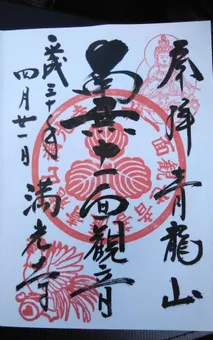 奉拝 青龍山
南無十一面観音
平成三十年
四月廿一日 満光寺